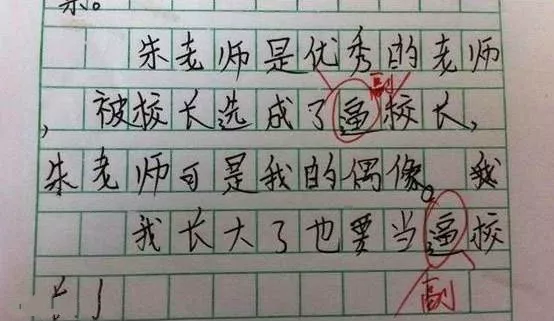 朱老师是优秀的老师
副
,被校长选成了逼校长,
朱老师可是我的偶像。我
我长大了也要当逼校
副